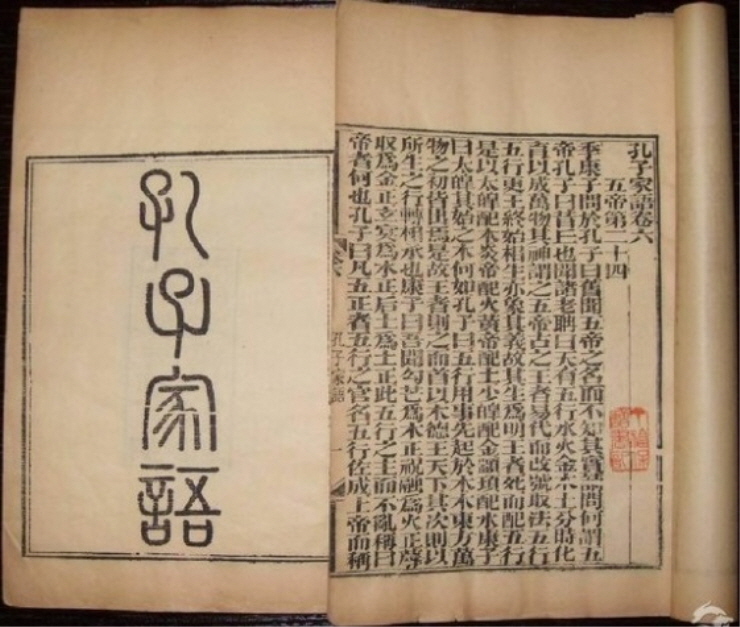 孔子家語
孔子家語卷六
五帝第二十四
季康子問於孔子曰舊聞五帝之名而不知其實請問何謂五
帝孔子曰昔丘也聞諸老聃曰天有五行水火金木土分時化
育以成萬物其神謂之五帝古之王者易代而改號取法五行
五行更王終始相生亦象其義故其生爲明王者死而配五行
是以太皞配木炎帝配火黃帝配土少皞配金顓頊配水康子
曰太皞其始之木何如孔子曰五行用事先起於木木東方萬
物之初皆出焉是故王者則之而首以木德王天下其次則以
所生之行轉相承也康子曰吾聞勾芒爲木正祝融爲火正蓐
收爲金正玄冥爲水正后土爲土正此五行之主而不亂稱曰
帝者何也孔子曰凡五正者五行之官名五行佐成上帝而稱
孔子家語